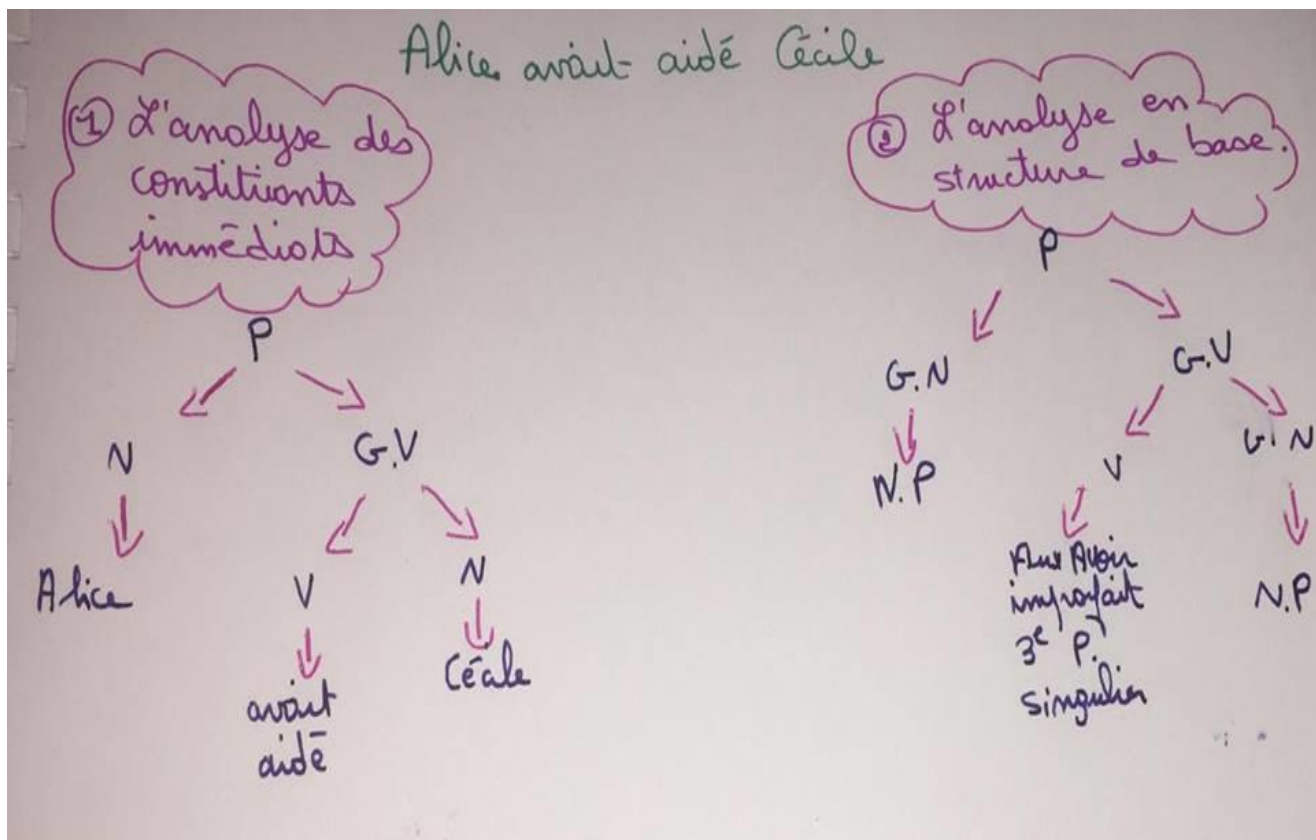 Alice avait aidé Cécile
① L'analyse des
constituants
immédiats
P
N
G.V
Alice
V
N
avait
aidé
Cécile
② L'analyse en
structure de base.
P
G.N
G.V
N.P
V
G.N
Avoir
imparfait
3e P.
singulier
N.P